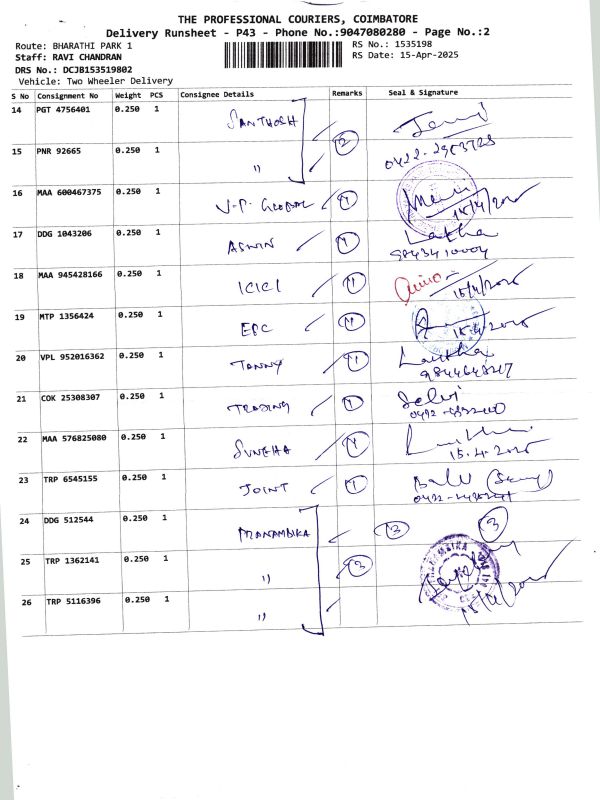 THE PROFESSIONAL COURIERS, COIMBATORE
Delivery Runsheet - P43 - Phone No.:9047080280 - Page No.:2
Route: BHARATHI PARK 1 RS No.: 1535198
Staff: RAVI CHANDRAN RS Date: 15-Apr-2025
DRS No.: DCJB153519802
Vehicle: Two Wheeler Delivery
S No Consignment No Weight PCS Consignee Details Remarks Seal & Signature
14 PGT 4756401 0.250 1 SANTHOSH
15 PNR 92665 0.250 1 " 2
16 MAA 600467375 0.250 1 V.P. GLOBAL 1 15/4/2025
17 DDG 1043206 0.250 1 ASWIN 1 9843410004
18 MAA 945428166 0.250 1 ICICI 1 15/4/2025
19 MTP 1356424 0.250 1 EDC 1 15.4.2025
20 VPL 952016362 0.250 1 TANNY 1
21 COK 25308307 0.250 1 TRADING 1 Selvi
22 MAA 576825080 0.250 1 SUNEHA 1 15.4.2025
23 TRP 6545155 0.250 1 JOINT 1
24 DDG 512544 0.250 1 PRANAMBIKA 3 3
25 TRP 1362141 0.250 1 " 3
26 TRP 5116396 0.250 1 "